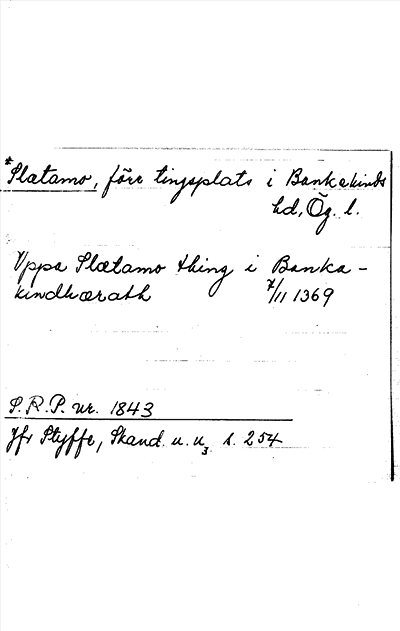 *Slætamo, förr tingsplats i Bankekinds
hd, Ög. l.
Vppa Slætamo thing i Banka-
kindhærath 7/11 1369
S.R.P. nr. 1843
Jfr Styffe, Skand. u. u3 s. 254